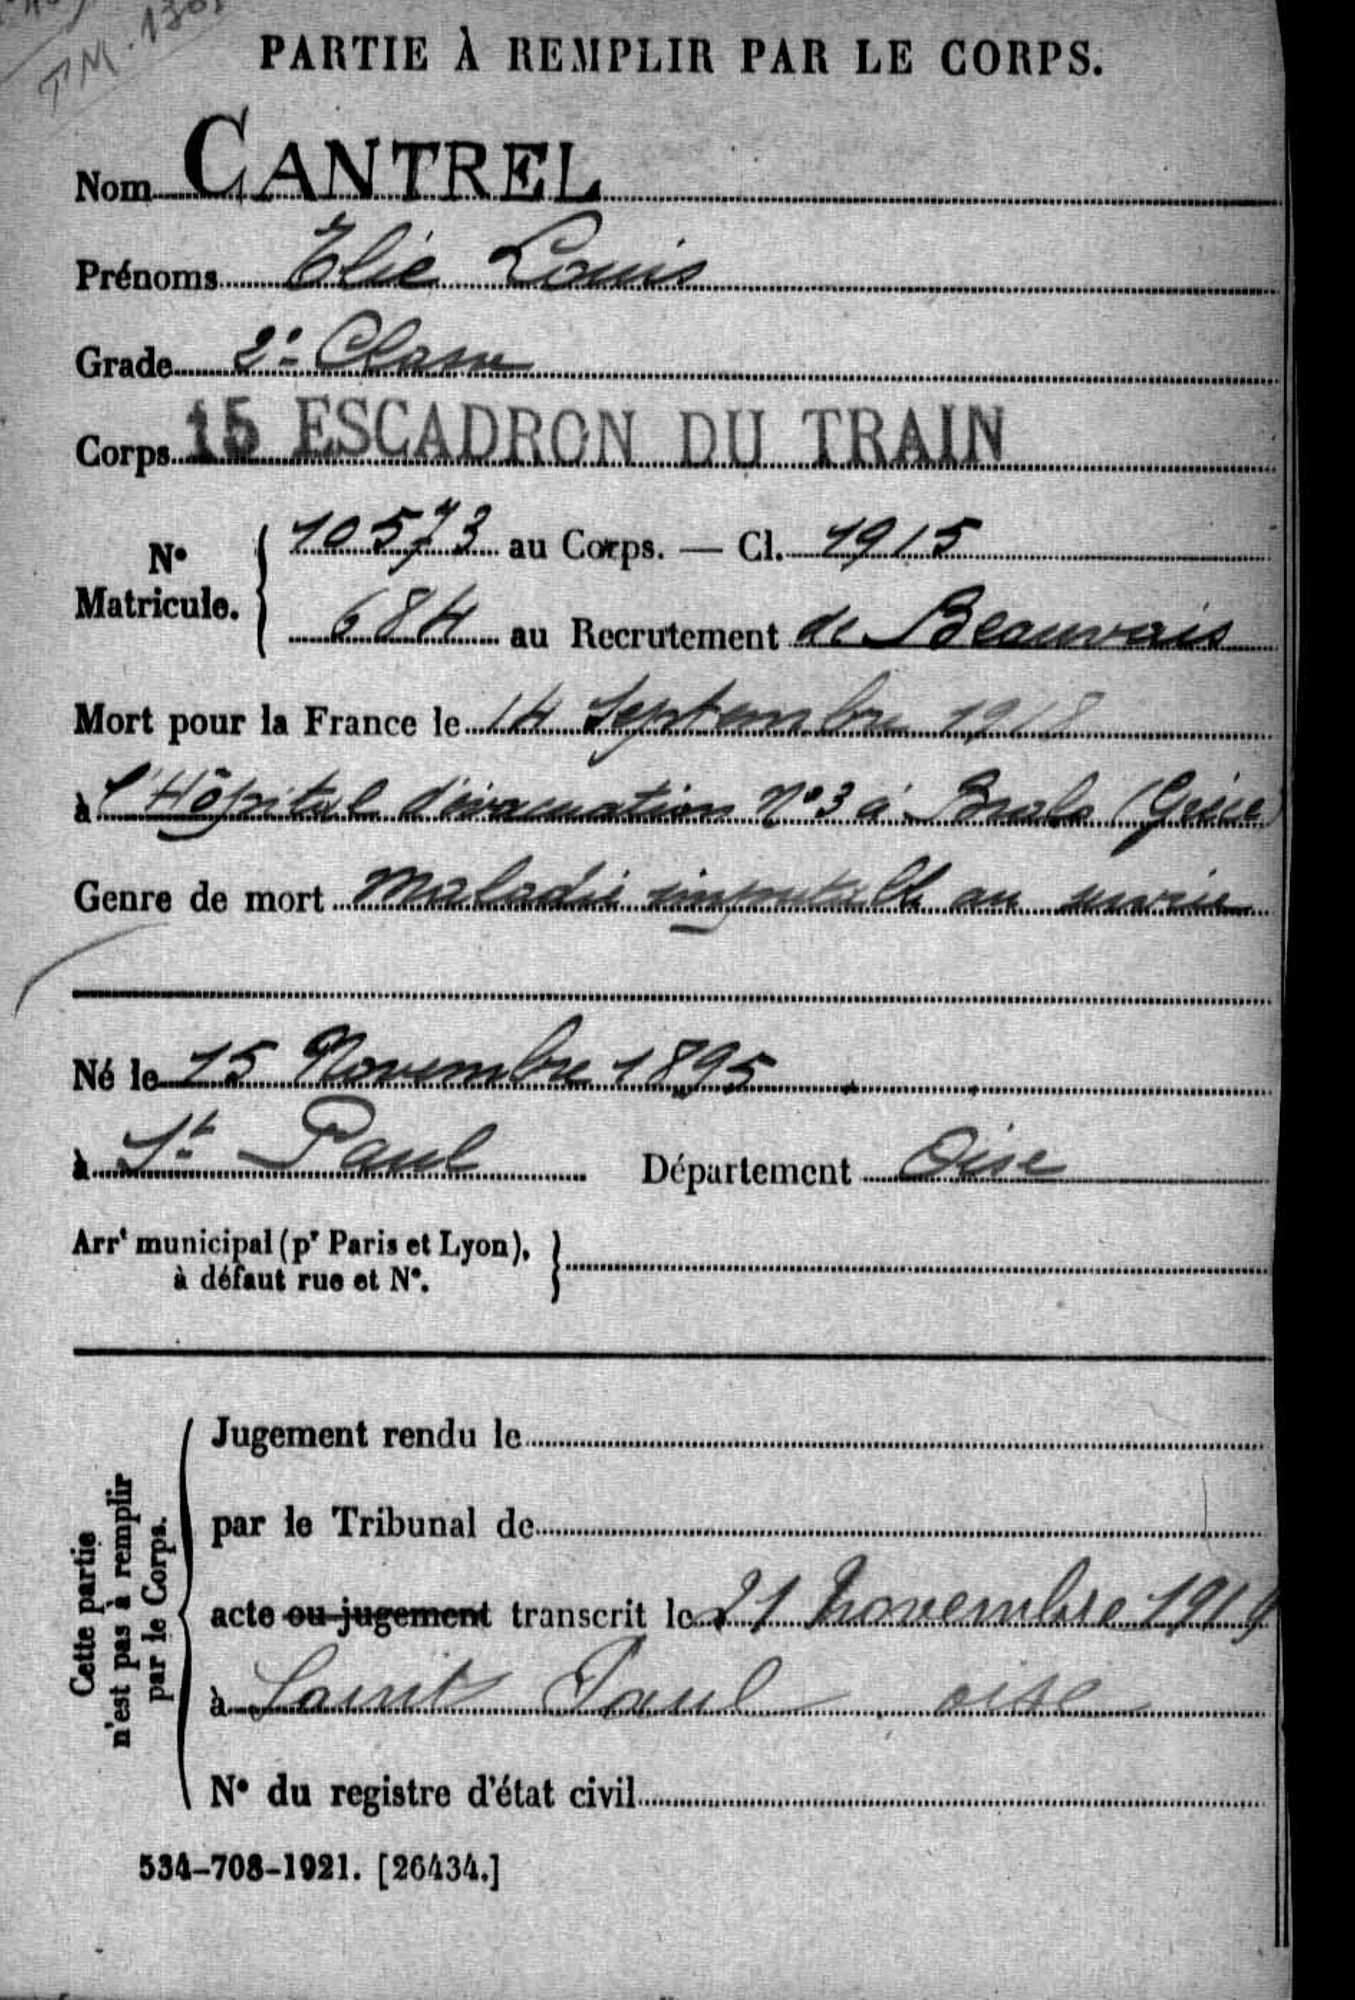 TM. 130
PARTIE À REMPLIR PAR LE CORPS.
Nom CANTREL
Prénoms Elie Louis
Grade 2e Classe
Corps 15 ESCADRON DU TRAIN
N° Matricule. { 10573 au Corps. — Cl. 1915
684 au Recrutement de Beauvais
Mort pour la France le 14 Septembre 1918
à l'Hôpital d'évacuation N°3 à Bralo (Grèce)
Genre de mort maladie imputable au service
Né le 15 Novembre 1895
à St Paul Département Oise
Arrt municipal (pr Paris et Lyon),
à défaut rue et N°.
Cette partie
n'est pas à remplir
par le Corps.
Jugement rendu le
par le Tribunal de
acte ou jugement transcrit le 21 novembre 1919
à Saint Paul oise
N° du registre d'état civil
534-708-1921. [26434.]